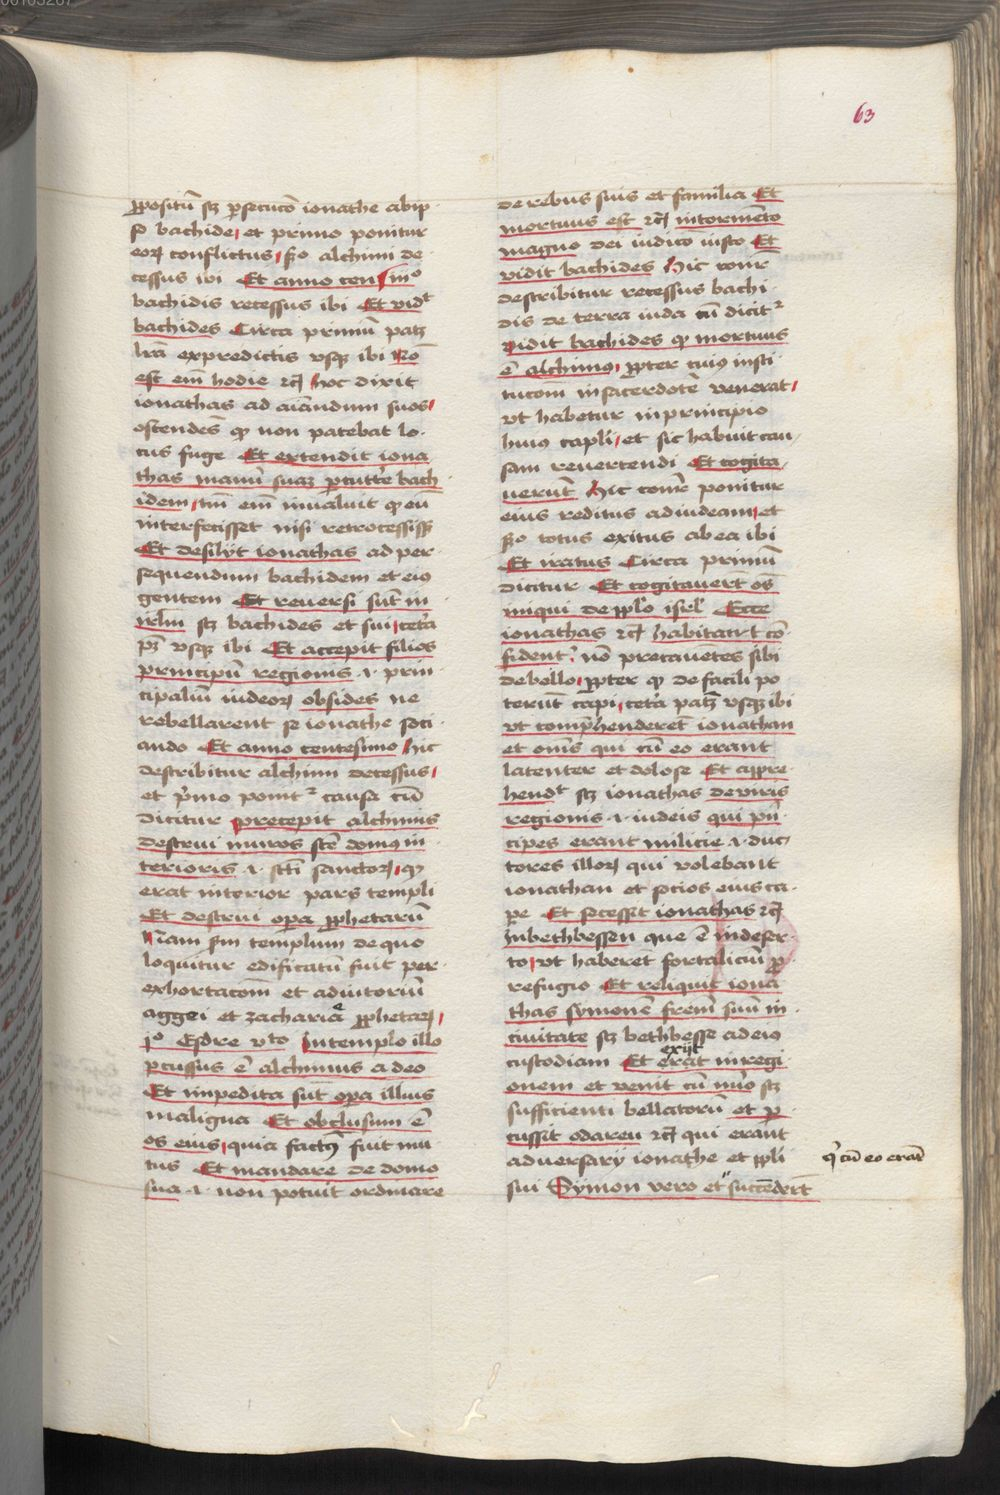 63
ppositū sz psecucō ionathe abip
so bachide et primo ponitur
eoꝝ conflictus scdo alchimi de
cessus ibi Et anno cen iiio
bachidis recessus ibi Et vidt
bachides Circa primū patz
lrā expredictis vsqꝫ ibi Nō
est em̄ hodie ⁊cꝭ hoc dixit
ionathas ad aiandum suos
ostendēs qꝫ non patebat lo
cus fuge Et extendit iona
thas manū suaꝫ pcutt'e bach
idem tm̄ em̄ inualuit qꝫ eū
interfecisset nisi retrocessissꝫ
Et desilijt ionathas ad per
sequendum bachidem et eiꝰ
gentem Et reuersi sūt in
irlm̄ sz bachides et sui cetā
pꝫ vsqꝫ ibi Et accepit filios
principū regionis .i. prin
cipaliū iudeoꝝ obsides ne
rebellarent se ionathe soci
ando Et anno centesimo Hic
describitur alchimi decessus
et p̄mo ponit᷑ causa cū
dicitur precepit alchimus
destrui muros scē domꝰ in
terioris .i. scti sanctoꝝ qꝫ
erat interior pars templi
Et destrui opa pphetarū
Nam scdm templum de quo
loquitur edificatū fuit per
exhortacom̄ et adiutoriū
aggei et zacharie pphetaꝝ
jo Esdre vto In templo illo
pcussus ē alchimus a deo
Et impedita sūt opa illius
maligna Et obclusum ē
os eius quia factꝰ fuit mu
tus Et mandare de domo
sua .i. non potuit ordinare
de rebus suis et familia Et
mortuus est ⁊cꝭ in tormēto
magno dei iudicō iusto Et
vidit bachides Hic cōnr
describitur recessus bachi
dis de terra iuda cū dicit᷑
Vidit bachides qꝫ mortuus
ē alchimus ppter cuiꝰ insti
tucom̄ in sacerdotē venerat
vt habetur in principio
huiꝰ capli et sic habuit cau
sam reuertendi Et cogita
uerūt Hic cōnr ponitur
eius reditus ad iudeam et
scdo totus exitus ab ea ibi
Et iratus Circa primū
dicitur Et cogitauerūt oēs
iniqui de pplo isrl Ecce
ionathas ⁊cꝭ habitant cō
fident᷑ nō precauētes sibi
de bello ppter qꝫ de facili po
terūt capi cetā patꝫ vsqꝫ ibi
vt compħenderet ionathan
et om̄s qui cū eo erant
latenter et dolose Et appre
hendt sz ionathas de viris
regionis .i. iudeis qui pn̄
cipes erant milicie .i. duc
tores illoꝝ qui volebant
ionathan et socios eius ca
pe Et secessit ionathas ⁊cꝭ
In bethbessen que ē in deser
to vt haberet fortaliciū p
refugio Et reliquit iona
thas symonē frem̄ suū in
ciuitate sz bethbesse ad eiꝰ
exijt
custodiam Et erat in regi
onem et venit cū nūo sz
sufficienti bellatorū et p
cussit odaren ⁊cꝭ qui erant
aduersarij ionathe et ppli
q' cū eo erāt
sui Symon vero et succēderūt